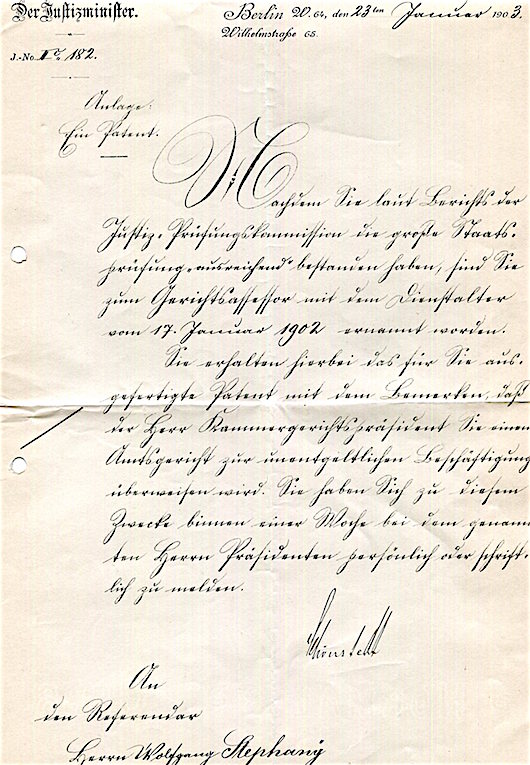 Der Justizminister.
Berlin W. 64, den 23ten Januar 1903.
Wilhelmstraße 65.
J.-No. I c. 182.
Anlage:
Ein Patent.
Nachdem Sie laut Berichts der
Justiz-Prüfungskommission die große Staats-
prüfung „ausreichend“ bestanden haben, sind Sie
zum Gerichtsassessor mit dem Dienstalter
vom 17. Januar 1902 ernannt worden.
Sie erhalten hierbei das für Sie aus-
gefertigte Patent mit dem Bemerken, daß
der Herr Kammergerichtspräsident Sie einem
Amtsgericht zur unentgeltlichen Beschäftigung
überweisen wird. Sie haben Sich zu diesem
Zwecke binnen einer Woche bei dem genann-
ten Herrn Präsidenten persönlich oder schrift-
lich zu melden.
Schönstedt
An
den Referendar
Herrn Wolfgang Stephany